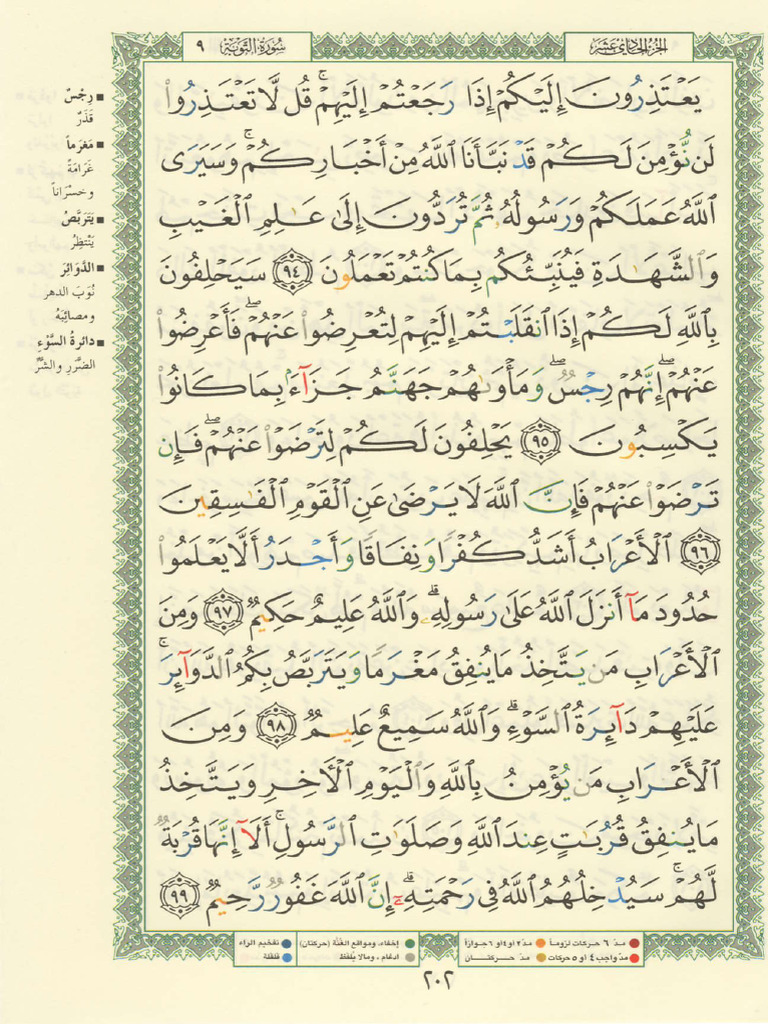 الجزء الحادي عشر
سورة التوبة ٩
يَعْتَذِرُونَ إِلَيْكُمْ إِذَا رَجَعْتُمْ إِلَيْهِمْ ۚ قُل لَّا تَعْتَذِرُوا۟
لَن نُّؤْمِنَ لَكُمْ قَدْ نَبَّأَنَا ٱللَّهُ مِنْ أَخْبَارِكُمْ ۚ وَسَيَرَى
ٱللَّهُ عَمَلَكُمْ وَرَسُولُهُۥ ثُمَّ تُرَدُّونَ إِلَىٰ عَـٰلِمِ ٱلْغَيْبِ
وَٱلشَّهَـٰدَةِ فَيُنَبِّئُكُم بِمَا كُنتُمْ تَعْمَلُونَ ٩٤ سَيَحْلِفُونَ
بِٱللَّهِ لَكُمْ إِذَا ٱنقَلَبْتُمْ إِلَيْهِمْ لِتُعْرِضُوا۟ عَنْهُمْ ۖ فَأَعْرِضُوا۟
عَنْهُمْ ۖ إِنَّهُمْ رِجْسٌ ۖ وَمَأْوَىٰهُمْ جَهَنَّمُ جَزَآءًۢ بِمَا كَانُوا۟
يَكْسِبُونَ ٩٥ يَحْلِفُونَ لَكُمْ لِتَرْضَوْا۟ عَنْهُمْ ۖ فَإِن
تَرْضَوْا۟ عَنْهُمْ فَإِنَّ ٱللَّهَ لَا يَرْضَىٰ عَنِ ٱلْقَوْمِ ٱلْفَـٰسِقِينَ
٩٦ ٱلْأَعْرَابُ أَشَدُّ كُفْرًا وَنِفَاقًا وَأَجْدَرُ أَلَّا يَعْلَمُوا۟
حُدُودَ مَآ أَنزَلَ ٱللَّهُ عَلَىٰ رَسُولِهِۦ ۗ وَٱللَّهُ عَلِيمٌ حَكِيمٌ ٩٧ وَمِنَ
ٱلْأَعْرَابِ مَن يَتَّخِذُ مَا يُنفِقُ مَغْرَمًا وَيَتَرَبَّصُ بِكُمُ ٱلدَّوَآئِرَ ۚ
عَلَيْهِمْ دَآئِرَةُ ٱلسَّوْءِ ۗ وَٱللَّهُ سَمِيعٌ عَلِيمٌ ٩٨ وَمِنَ
ٱلْأَعْرَابِ مَن يُؤْمِنُ بِٱللَّهِ وَٱلْيَوْمِ ٱلْـَٔاخِرِ وَيَتَّخِذُ
مَا يُنفِقُ قُرُبَـٰتٍ عِندَ ٱللَّهِ وَصَلَوَٰتِ ٱلرَّسُولِ ۚ أَلَآ إِنَّهَا قُرْبَةٌ
لَّهُمْ ۚ سَيُدْخِلُهُمُ ٱللَّهُ فِى رَحْمَتِهِۦٓ ۗ إِنَّ ٱللَّهَ غَفُورٌ رَّحِيمٌ ٩٩
■ رِجْسٌ
قَذَرٌ
■ مَغرَماً
غَرَامَةً
وخُسْرَاناً
■ يَتَرَبَّصُ
يَنْتَظِرُ
■ الدَّوَائِرَ
نُوَبَ الدهر
ومصائِبَهُ
■ دائرةُ السَّوْءِ
الضَّرَرِ والشَّرِّ
مدّ ٦ حركات لزوماً مدّ ٢ أو ٤ أو ٦ جوازاً
مدّ واجب ٤ أو ٥ حركات مدّ حركتـان
إخفاء، ومواقع الغُنَّة (حركتان) تفخيم الراء
ادغام، ومالا يُلفَظ قلقلة
٢٠٢